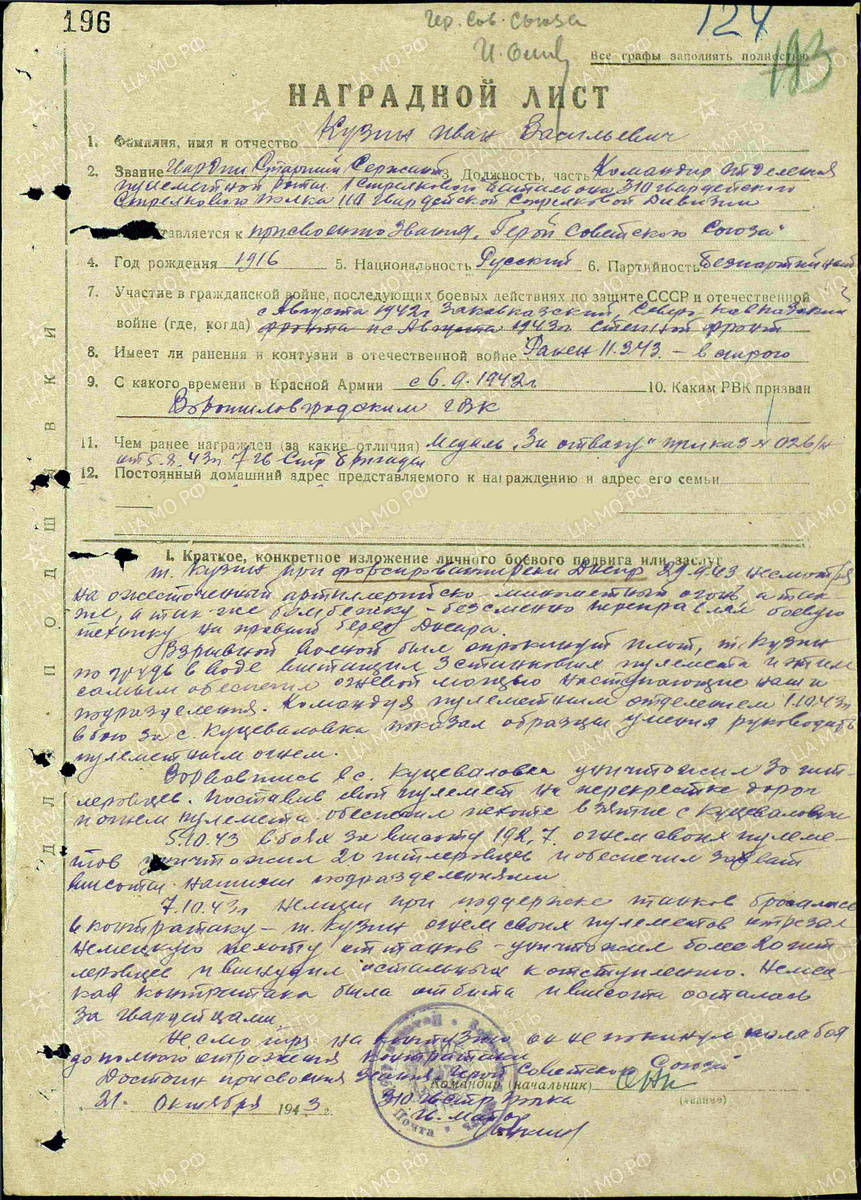 196
Гер. Сов. Союза
124
193
Все графы заполнять полностью
НАГРАДНОЙ ЛИСТ
1. Фамилия, имя и отчество Кузин Иван Васильевич
2. Звание Гвардии Старший Сержант 3. Должность, часть Командир отделения
пулеметной роты 1 стрелкового батальона 310 гвардейского
Стрелкового полка 110 Гвардейской Стрелковой Дивизии
ставляется к присвоению звания „Герой Советского Союза"
4. Год рождения 1916 5. Национальность Русский 6. Партийность Безпартийный
7. Участие в гражданской войне, последующих боевых действиях по защите СССР и отечественной
с Августа 1942г Закавказский, Северо-Кавказский
войне (где, когда) фронта и с Августа 1943г Степной фронт
8. Имеет ли ранения и контузии в отечественной войне Ранен 11.3.43. –
9. С какого времени в Красной Армии с 6.9.1942г 10. Каким РВК призван
Ворошиловградским ГВК
11. Чем ранее награжден (за какие отличия) Медаль „За отвагу" приказ № 026/н
от 5.8.43г 7 гв Стр бригады
12. Постоянный домашний адрес представляемого к награждению и адрес его семьи
I. Краткое, конкретное изложение личного боевого подвига или заслуг
т. Кузин при форсировании реки Днепр 29.9.43 несмотря
на ожесточенный артиллерийско-минометный огонь а так
же, а так-же бомбежку – безсменно переправлял боевую
технику на правый берег Днепра.
Взрывной волной был опрокинут плот, т. Кузин
по грудь в воде вытащил 3 станковых пулемета и этим
самым обеспечил огневой мощью наступающие наши
подразделения. Командуя пулеметным отделением 1.10.43г
в бою за с. Куцеваловка показал образцы умения руководить
пулеметным огнем.
Ворвавшись в с. Куцеваловка уничтожил 30 гит-
леровцев. Поставив свой пулемет на перекрестке дорог
огнем пулемета обеспечил пехоте взятие с Куцеваловки
5.10.43 в боях за высоту 192,7. огнем своих пулеме-
тов уничтожил 20 гитлеровцев и обеспечил захват
высоты нашими подразделениями
7.10.43г Немцы при поддержке танков бросились
в контратаку – т. Кузин огнем своих пулеметов отрезал
немецкую пехоту от танков – уничтожил более 20 гит-
леровцев и вынудил остальных к отступлению. Немец-
кая контратака была отбита и высота осталась
за гвардейцами
Несмотря на контузию он не покинул поля боя
до полного отражения контратаки
Достоин присвоения звания „Герой Советского Союза"
Командир (начальник)
(звание)
21. Октября 1943 г.
310 гв стр полка
Почта
ДЛЯ ПОДШИВКИ
ЦАМО.РФ
ПАМЯТЬ НАРОДА